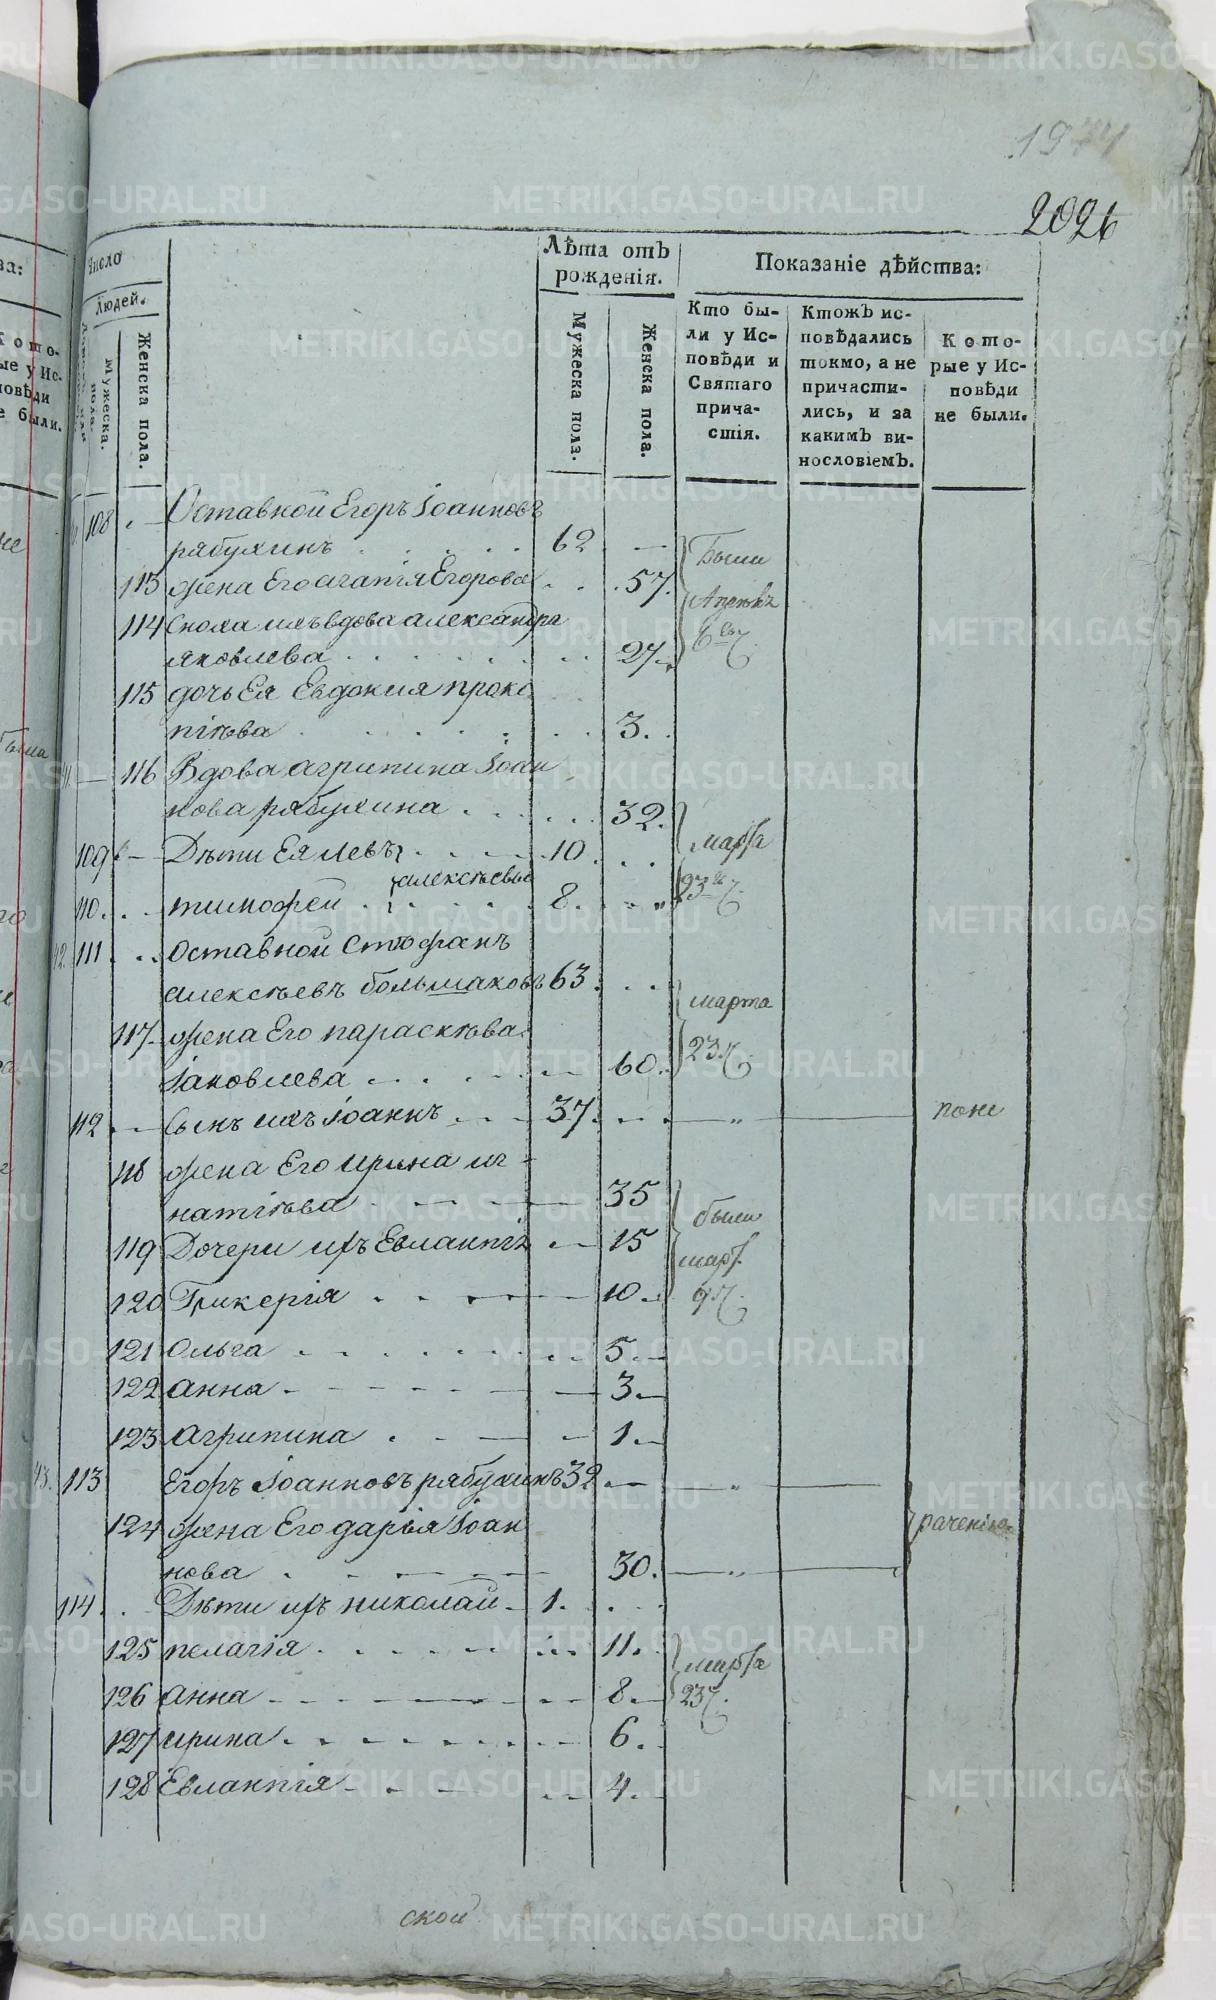 1974
2026
Число
Людей.
Мужеска.
Женска пола.
Лѣта отъ
рожденія.
Мужеска пола.
Женска пола.
Показаніе дѣйства:
Кто бы-
ли у Ис-
повѣди и
Святаго
прича-
стія.
Ктожъ ис-
повѣдались
токмо, а не
причасти-
лись, и за
какимъ ви-
нословіемъ.
Кото-
рые у Ис-
повѣди
не были.
108 Оставной Егоръ Іоанновъ
рябухинъ 62 Были
113 жена Его агапія Егорова 57.
114 Сноха ихъ вдова александра 6
яковлева 27
115 дочь Ея Евдокия проко
піева 3.
116 Вдова агрипина Іоан
нова рябухина 32.
109 Дѣти Ея Левъ 10 марта
алексѣевы 23
110. тимофей 8.
42. 111 Оставной Стефанъ
алексѣевъ большаковъ 63 марта
117 жена Его параскѣва
Іаковлева 60. 23
112 Сынъ ихъ Іоаннъ 37.
118 жена Его Ирина иг-
натіева 35 были
119 Дочери ихъ Евлампія 15 март.
120 Гликерія 10 9
121 Ольга 5
122 Анна 3
123 Агрипина 1
43. 113 Егоръ Іоанновъ рябухинъ 32
124 жена Его дарья Іоан
нова 30.
114. Дѣти ихъ николай 1.
125 пелагія 11. марта
126 Анна 8 23
127 ирина 6.
128 Евлампія 4.
ской
METRIKI.GASO-URAL.RU